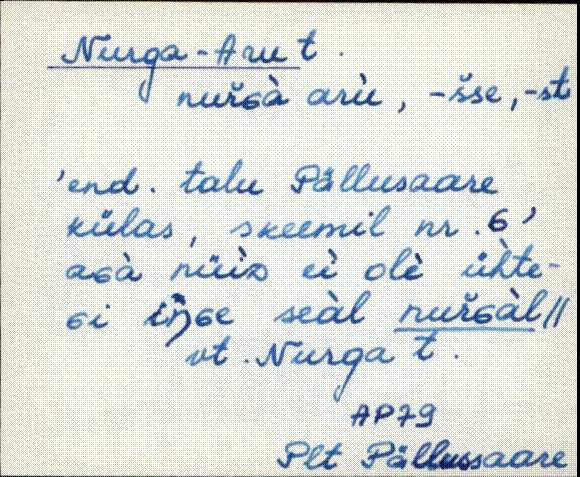 Nurga-Aru t.
nur̆ɢà arù, -šse, -st
'end. talu Pällusaare
külas, skeemil nr. 6'
aɢà nüìᴅ eì olè üh̀te-
ɢi iŋ̆ɢe seàl nur̆ɢàl //
vt. Nurga t.
AP79
Plt Pällussaare